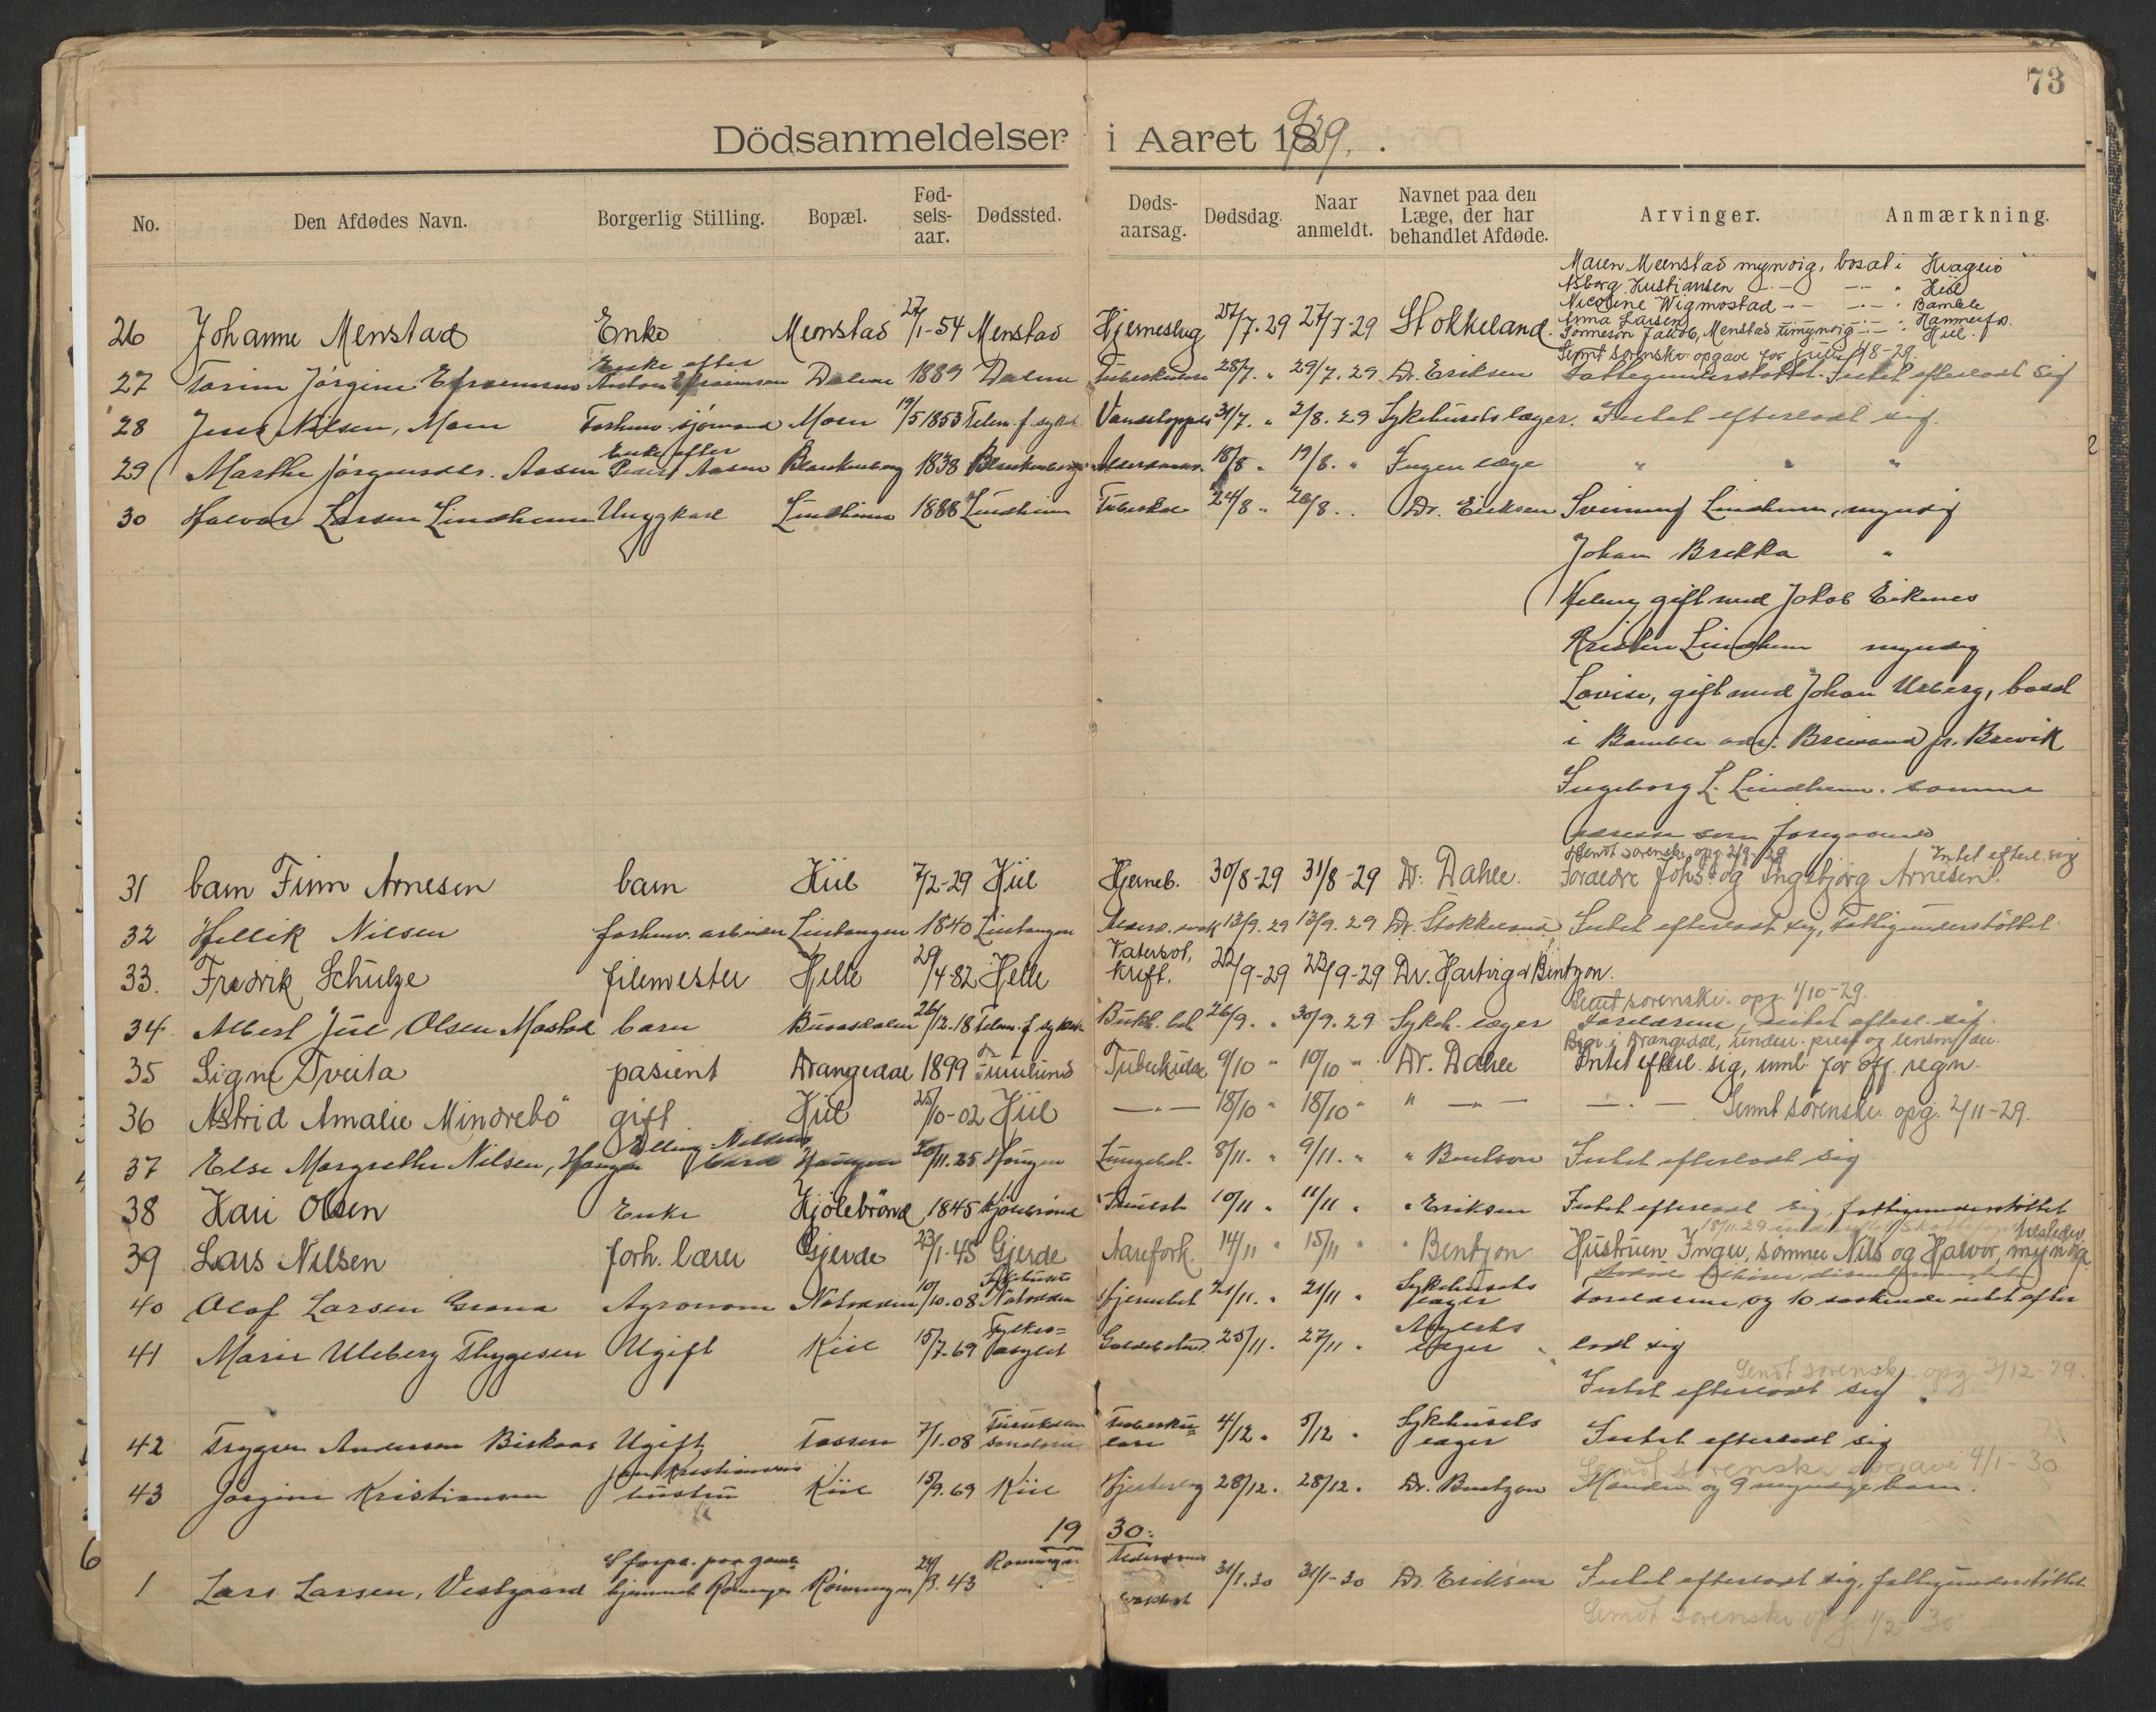 73
Dödsanmeldelser i Aaret 1929.
No. Den Afdødes Navn. Borgerlig Stilling. Bopæl. Fødselsaar. Dødssted. Dødsaarsag. Dødsdag. Naar anmeldt. Navnet paa den Læge, der har behandlet Afdøde. Arvinger. Anmærkning.
Maren Menstad myndig, bosat i Kragerø
Asborg Kristiansen -"- -"- " Kiil
Nicoline Wigmostad -"- -"- " Bamble
Anna Larsen -"- -"- : Hammerfs.
26 Johanne Menstad Enke Menstad 27/1-54 Menstad Hjerneslag 27/7.29 27/7-29 Stokkeland. Sønnesøn Jakob, Menstad umyndig -"- : Kiil.
Sendt sorenskr. opgave for juli 1/8-29.
27 Tarine Jørgine Efraimsen Enke efter Anton Efraimsen Dalene 1889 Dalene Tuberkulose 28/7. " 29/7. 29 Dr. Eriksen Fattigunderstøttet. Intet efterladt sig
28 Jens Nilsen, Moen Forhenv. sjømand Moen 19/5 1853 Telem. f. sykeh. 31/7. " 2/8. 29 Sykehusets læger. Intet efterladt sig.
29 Marthe Jørgensdtr. Aasen Enke efter Peder Aasen Blankenberg 1838 Blankenberg 18/8 " 19/8. " Ingen læge " " "
30 Halvor Larsen Lindheim Ungkarl Lindheim 1888 Lindheim Tuberkul. 24/8 " 26/8. . Dr. Eriksen Lindheim, myndig
Johan Brekka "
gift med Jakob Eiknes
Kristen Lindheim myndig
Lovise, gift med Johan Urberg, bosat
i Bamble adr. pr. Brevik
Ingeborg L. Lindheim. samme
adresse som foregaaende
Sendt sorenskr. opg. 2/9-29 Intet efterl. sig
31 barn Finn Arnesen barn Kiil 7/2-29 Kiil Hjerneb. 30/8-29 31/8-29 Dr. Dahle. Foræidre Johs. og Ingebjørg Arnesen.
32 Hellik Nilsen forhenv. arbeider Lintangen 1840 Lintangen Alderd. svak 13/9. 29 13/9. 29 Dr. Stokkeland Intet efterladt sig, Fattigunderstøttet
33. Fredrik Schulze filemester Helle 29/4-82 Helle Vatersot, Kreft. 22/9-29 23/9-29 Dr. Hartvig & Bentzon.
Sendt sorenskr. opg. 1/10-29.
34 Albert Juul Olsen Mostad barn 26/12.18 Telem. f. sykeh. Bukh. bet 26/9. " 30/9. 29 Sykeh. læger Forældrene, intet efterl. sig.
Begr. i Drangedal, underr. prest og lensm. der.
35 Signe Tveita pasient Drangedal 1899 Furulund Tuberkulose 9/10 " 10/10 " Dr. Dahle Intet efterl. sig, innl. for off. regn.
36 Astrid Amalie Mindrebø gift Kiil 25/10-02 Kiil -"- 18/10 " 18/10 " " -"- -"- Sendt sorenskr. opg. 2/11-29.
37 Else Margrethe Nilsen, Haugen Elling Nilsens barn Haugen 20/11.25 Haugen Lungebet. 8/11. " 9/11. " " Bentzon Intet efterladt sig
38 Kari Olsen Enke Kjölebrönd 1845 Kjölebrönd 10/11 " 11/11 " " Eriksen Intet efterladt sig, fattigunderstøttet
39 Lars Nilsen forh. lærer Gjerde 23/1-45 Gjerde Aarefork. 14/11 " 15/11 " " Bentzon Hustruen Inger, sønner Nils og Halvor, myndige
40 Olaf Larsen Grana Agronom Notodden 10/10.08 Sykehuset Notodden Hjernebet 21/11. " 21/11 " Sykehusets læger Forældrene og 10 søskende intet efter
41 Marie Uleberg Thygesen Ugift Kiil 15/7.69 Fylkesasylet 25/11. 27/11 " Asylets læger ladt sig
Sendt sorenskr. opg 2/12-29.
Intet efterladt sig
42 Trygve Andersen Biskaas Ugift Tossen 7/1.08 Tuberkulose 4/12 " 5/12 " Sykehusets læger Intet efterladt sig
Sendt sorenskr. opgave 4/1-30
43 Jørgine Kristiansen Kristiansens hustru Kiil 15/9.69 Kiil Hjerteslag 28/12. 28/12. Dr. Bentzon Manden og 9 myndige barn.
19 30:
1 Lars Larsen, Vestgaard Forpl. paa gamlehjemmet Rønningen Rønningen 24/3.43 Rønningen 31/1.30 31/1-30 Dr. Eriksen Intet efterladt sig, fattigunderstøttet
Sendt sorenskr. opg. 1/2 30
6